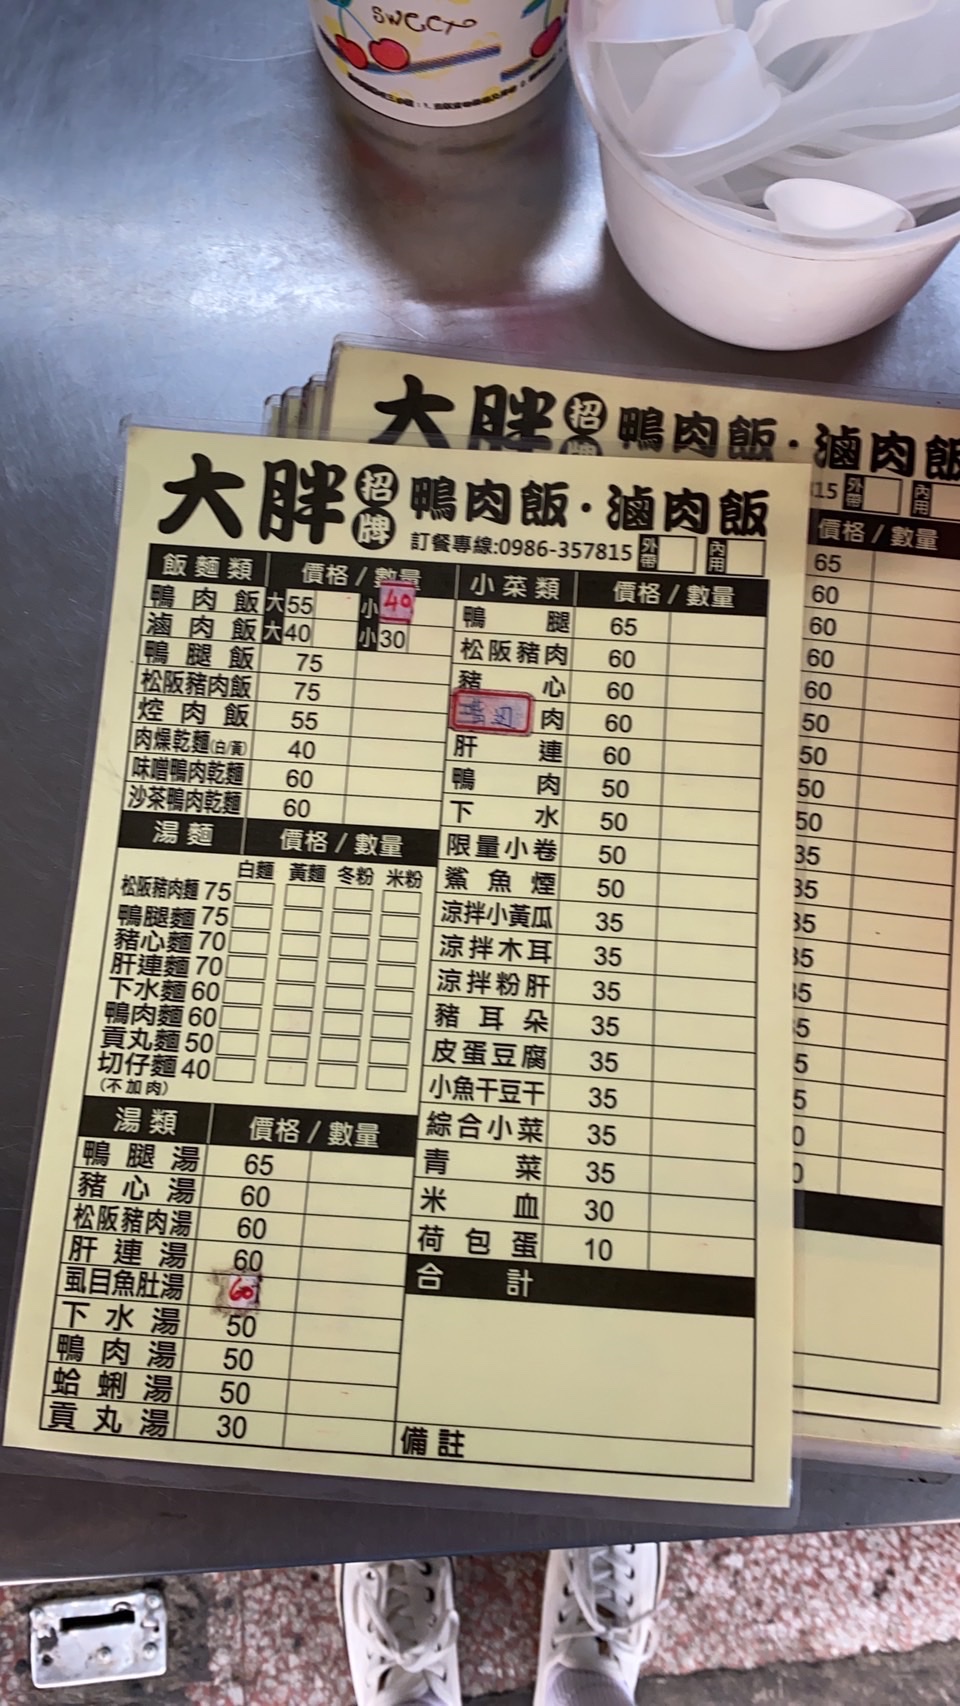 SWEET
大胖 招牌 鴨肉飯·滷肉飯
大胖 招牌 鴨肉飯·滷肉飯
訂餐專線:0986-357815 外帶 內用
飯麵類 價格/數量
鴨肉飯 大55 小40
滷肉飯 大40 小30
鴨腿飯 75
松阪豬肉飯 75
焢肉飯 55
肉燥乾麵(白/黃) 40
味噌鴨肉乾麵 60
沙茶鴨肉乾麵 60
湯麵 價格/數量
白麵 黃麵 冬粉 米粉
松阪豬肉麵 75
鴨腿麵 75
豬心麵 70
肝連麵 70
下水麵 60
鴨肉麵 60
貢丸麵 50
切仔麵 40
(不加肉)
湯類 價格/數量
鴨腿湯 65
豬心湯 60
松阪豬肉湯 60
肝連湯 60
虱目魚肚湯 60
下水湯 50
鴨肉湯 50
蛤蜊湯 50
貢丸湯 30
小菜類 價格/數量
鴨腿 65
松阪豬肉 60
豬心 60
肉 60
肝連 60
鴨肉 50
下水 50
限量小卷 50
鯊魚煙 50
涼拌小黃瓜 35
涼拌木耳 35
涼拌粉肝 35
豬耳朵 35
皮蛋豆腐 35
小魚干豆干 35
綜合小菜 35
青菜 35
米血 30
荷包蛋 10
合計
備註
15 外帶 內用
價格/數量
65
60
60
60
60
50
50
50
50
35
35
35
35